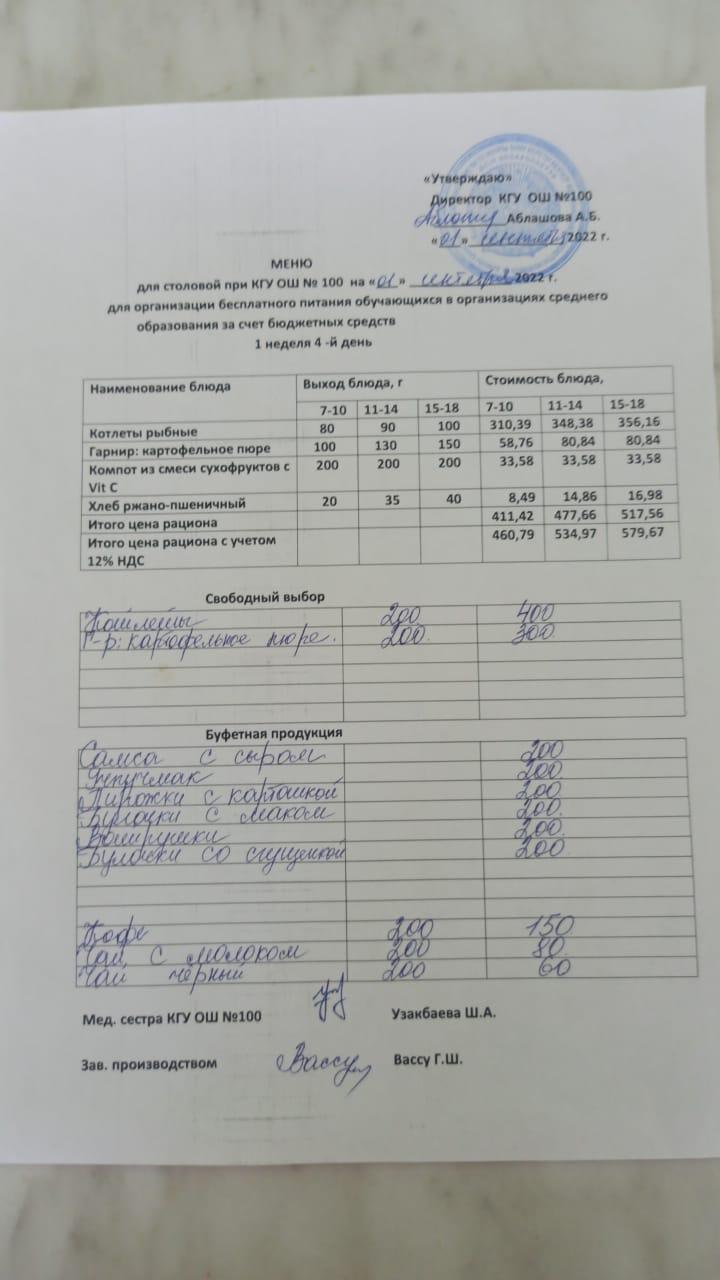 «Утверждаю»
Директор КГУ ОШ №100
Аблашова А.Б.
«01» сентября 2022 г.
МЕНЮ
для столовой при КГУ ОШ № 100 на «01» сентября 2022 г.
для организации бесплатного питания обучающихся в организациях среднего
образования за счет бюджетных средств
1 неделя 4 -й день
Наименование блюда Выход блюда, г Стоимость блюда,
7-10 11-14 15-18 7-10 11-14 15-18
Котлеты рыбные 80 90 100 310,39 348,38 356,16
Гарнир: картофельное пюре 100 130 150 58,76 80,84 80,84
Компот из смеси сухофруктов с 200 200 200 33,58 33,58 33,58
Vit C
Хлеб ржано-пшеничный 20 35 40 8,49 14,86 16,98
Итого цена рациона 411,42 477,66 517,56
Итого цена рациона с учетом 460,79 534,97 579,67
12% НДС
Свободный выбор
Котлеты 200 400
Г-р: картофельное пюре. 200. 300
Буфетная продукция
Самса с сыром 200
200.
Пирожки с картошкой 200
Булочки с маком 200.
Ватрушки 200.
Булочки со сгущенкой 200
Кофе 200 150
Чай с молоком 200 80.
Чай черный 200 60
Мед. сестра КГУ ОШ №100 Узакбаева Ш.А.
Зав. производством Вассу Вассу Г.Ш.